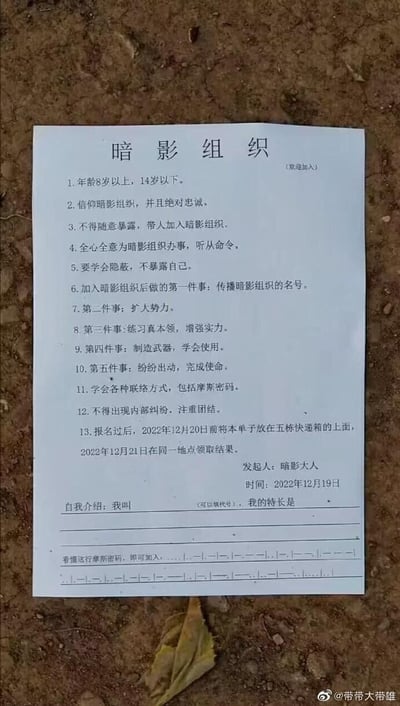 暗影组织
(欢迎加入)
1.年龄8岁以上，14岁以下。
2.信仰暗影组织，并且绝对忠诚。
3.不得随意暴露，带人加入暗影组织.
4.全心全意为暗影组织办事，听从命令。
5.要学会隐蔽，不暴露自己。
6.加入暗影组织后做的第一件事：传播暗影组织的名号。
7.第二件事：扩大势力。
8.第三件事:练习真本领，增强实力。
9.第四件事：制造武器，学会使用。
10.第五件事：纷纷出动，完成使命。
11.学会各种联络方式，包括摩斯密码。
12.不得出现内部纠纷，注重团结。
13.报名过后，2022年12月20日前将本单子放在五栋快递箱的上面，
2022年12月21日在同一地点领取结果。
发起人：暗影大人
时间：2022年12月19日
自我介绍：我叫 (可以填代号)，我的特长是
看懂这行摩斯密码，即可加入
@带带大带雄